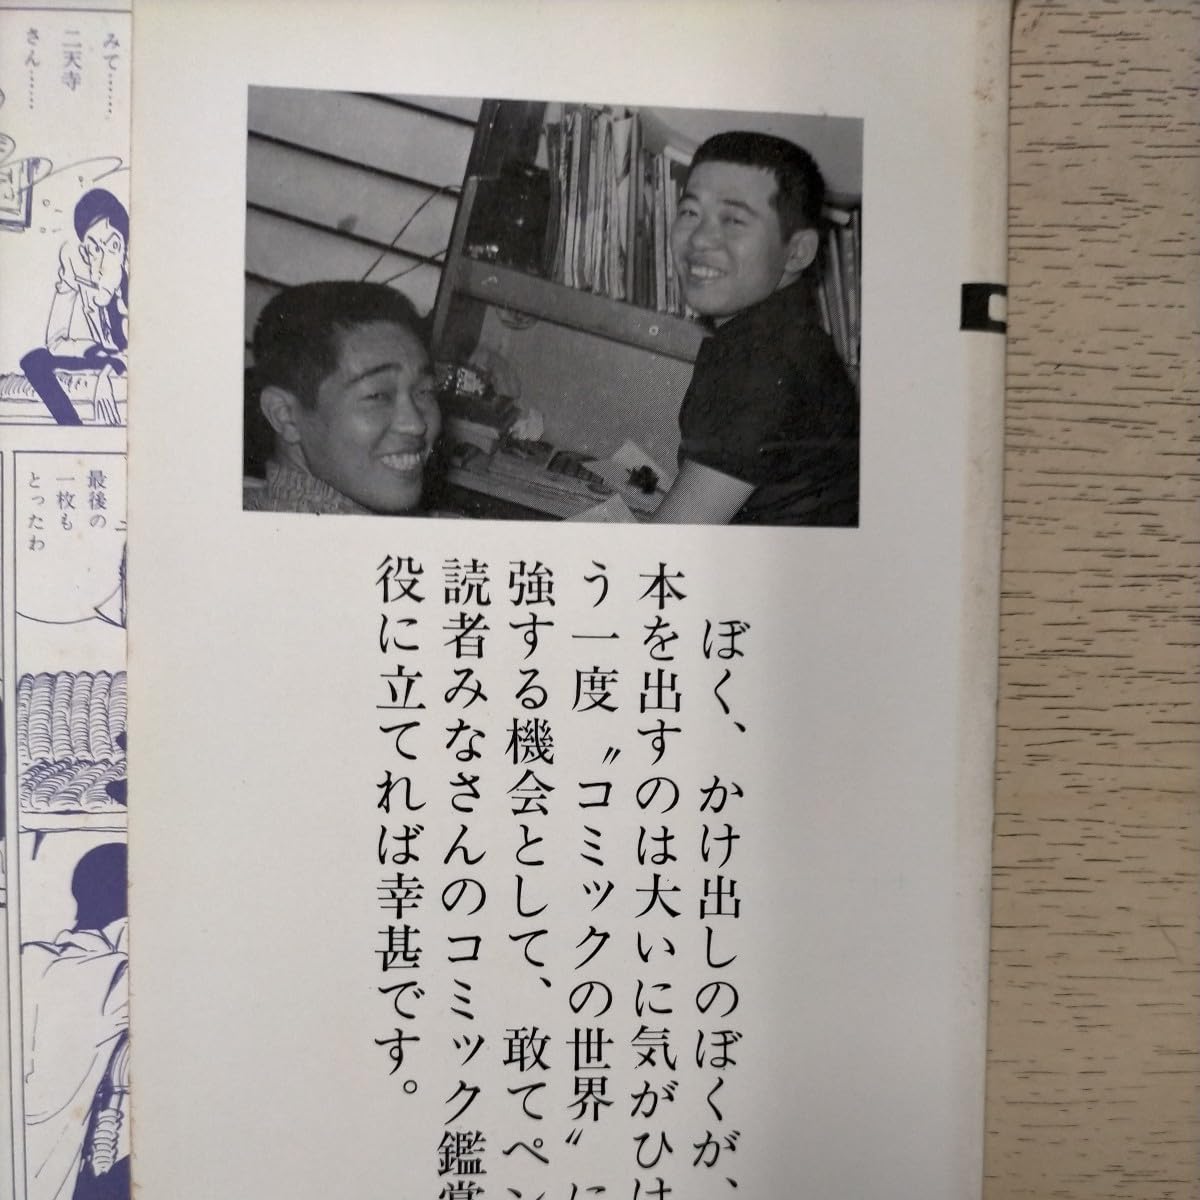 ぼく、かけ出しのぼくが、
本を出すのは大いに気がひけ
う一度〝コミックの世界〟に
強する機会として、敢てペン
読者みなさんのコミック鑑賞
役に立てれば幸甚です。
みて……
二天寺
さん……
最後の
一枚も
とったわ